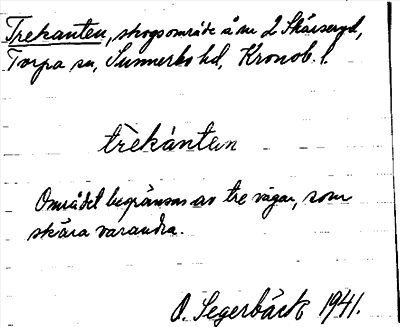 Trekanten, skogsområde å nr 2 Skärsergd,
Torpa sn, Sunnerbo hd, Kronob. l.
trekànten
Området begränsas av tre vägar, som
skära varandra.
O. Segerbäck 1941.